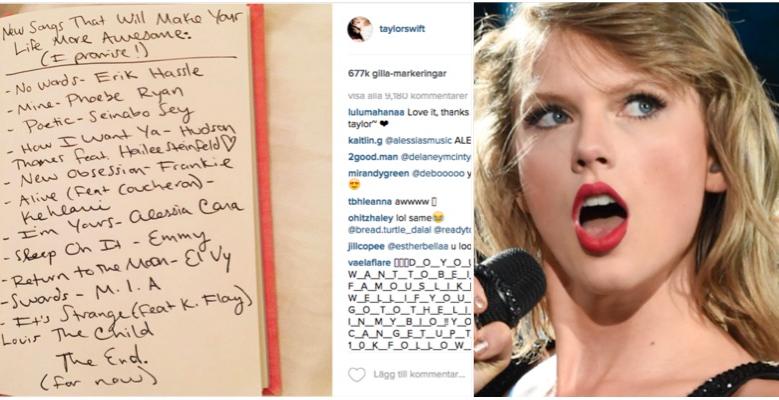 New Songs That Will Make Your
Life More Awesome:
(I promise!)
- No Words - Erik Hassle
- Mine - Phoebe Ryan
- Poetic - Seinabo Sey
- How I Want Ya - Hudson
Thames feat. Hailee Steinfeld♡
- New Obsession - Frankie
- Alive (feat Coucheron) -
Kehlani
- I'm Yours - Alessia Cara
- Sleep On It - Emmy
- Return to the Moon - El Vy
- Swords - M.I.A
- It's Strange (feat K. Flay)
Louis The Child
The End.
(for now)
taylorswift
677k gilla-markeringar
visa alla 9,180 kommentarer
lulumahanaa Love it, thanks
taylor~ ❤
kaitlin.g @alessiasmusic ALE
2good.man @delaneymcinty
mirandygreen @debooooo y
😍
tbhleanna awwww
ohitzhaley lol same😂
@bread.turtle_dalal @readyto
jillcopee @estherbellaa u loo
vaelaflare D_O_Y_O_U
W_A_N_T_T_O_B_E_I_
F_A_M_O_U_S_L_I_K_
W_E_L_L_I_F_Y_O_U_
G_O_T_O_T_H_E_L_I
I_N_M_Y_B_I_O_!!_Y_O
C_A_N_G_E_T_U_P_T_
1_0_K_F_O_L_L_O_W_
Lägg till kommentar...